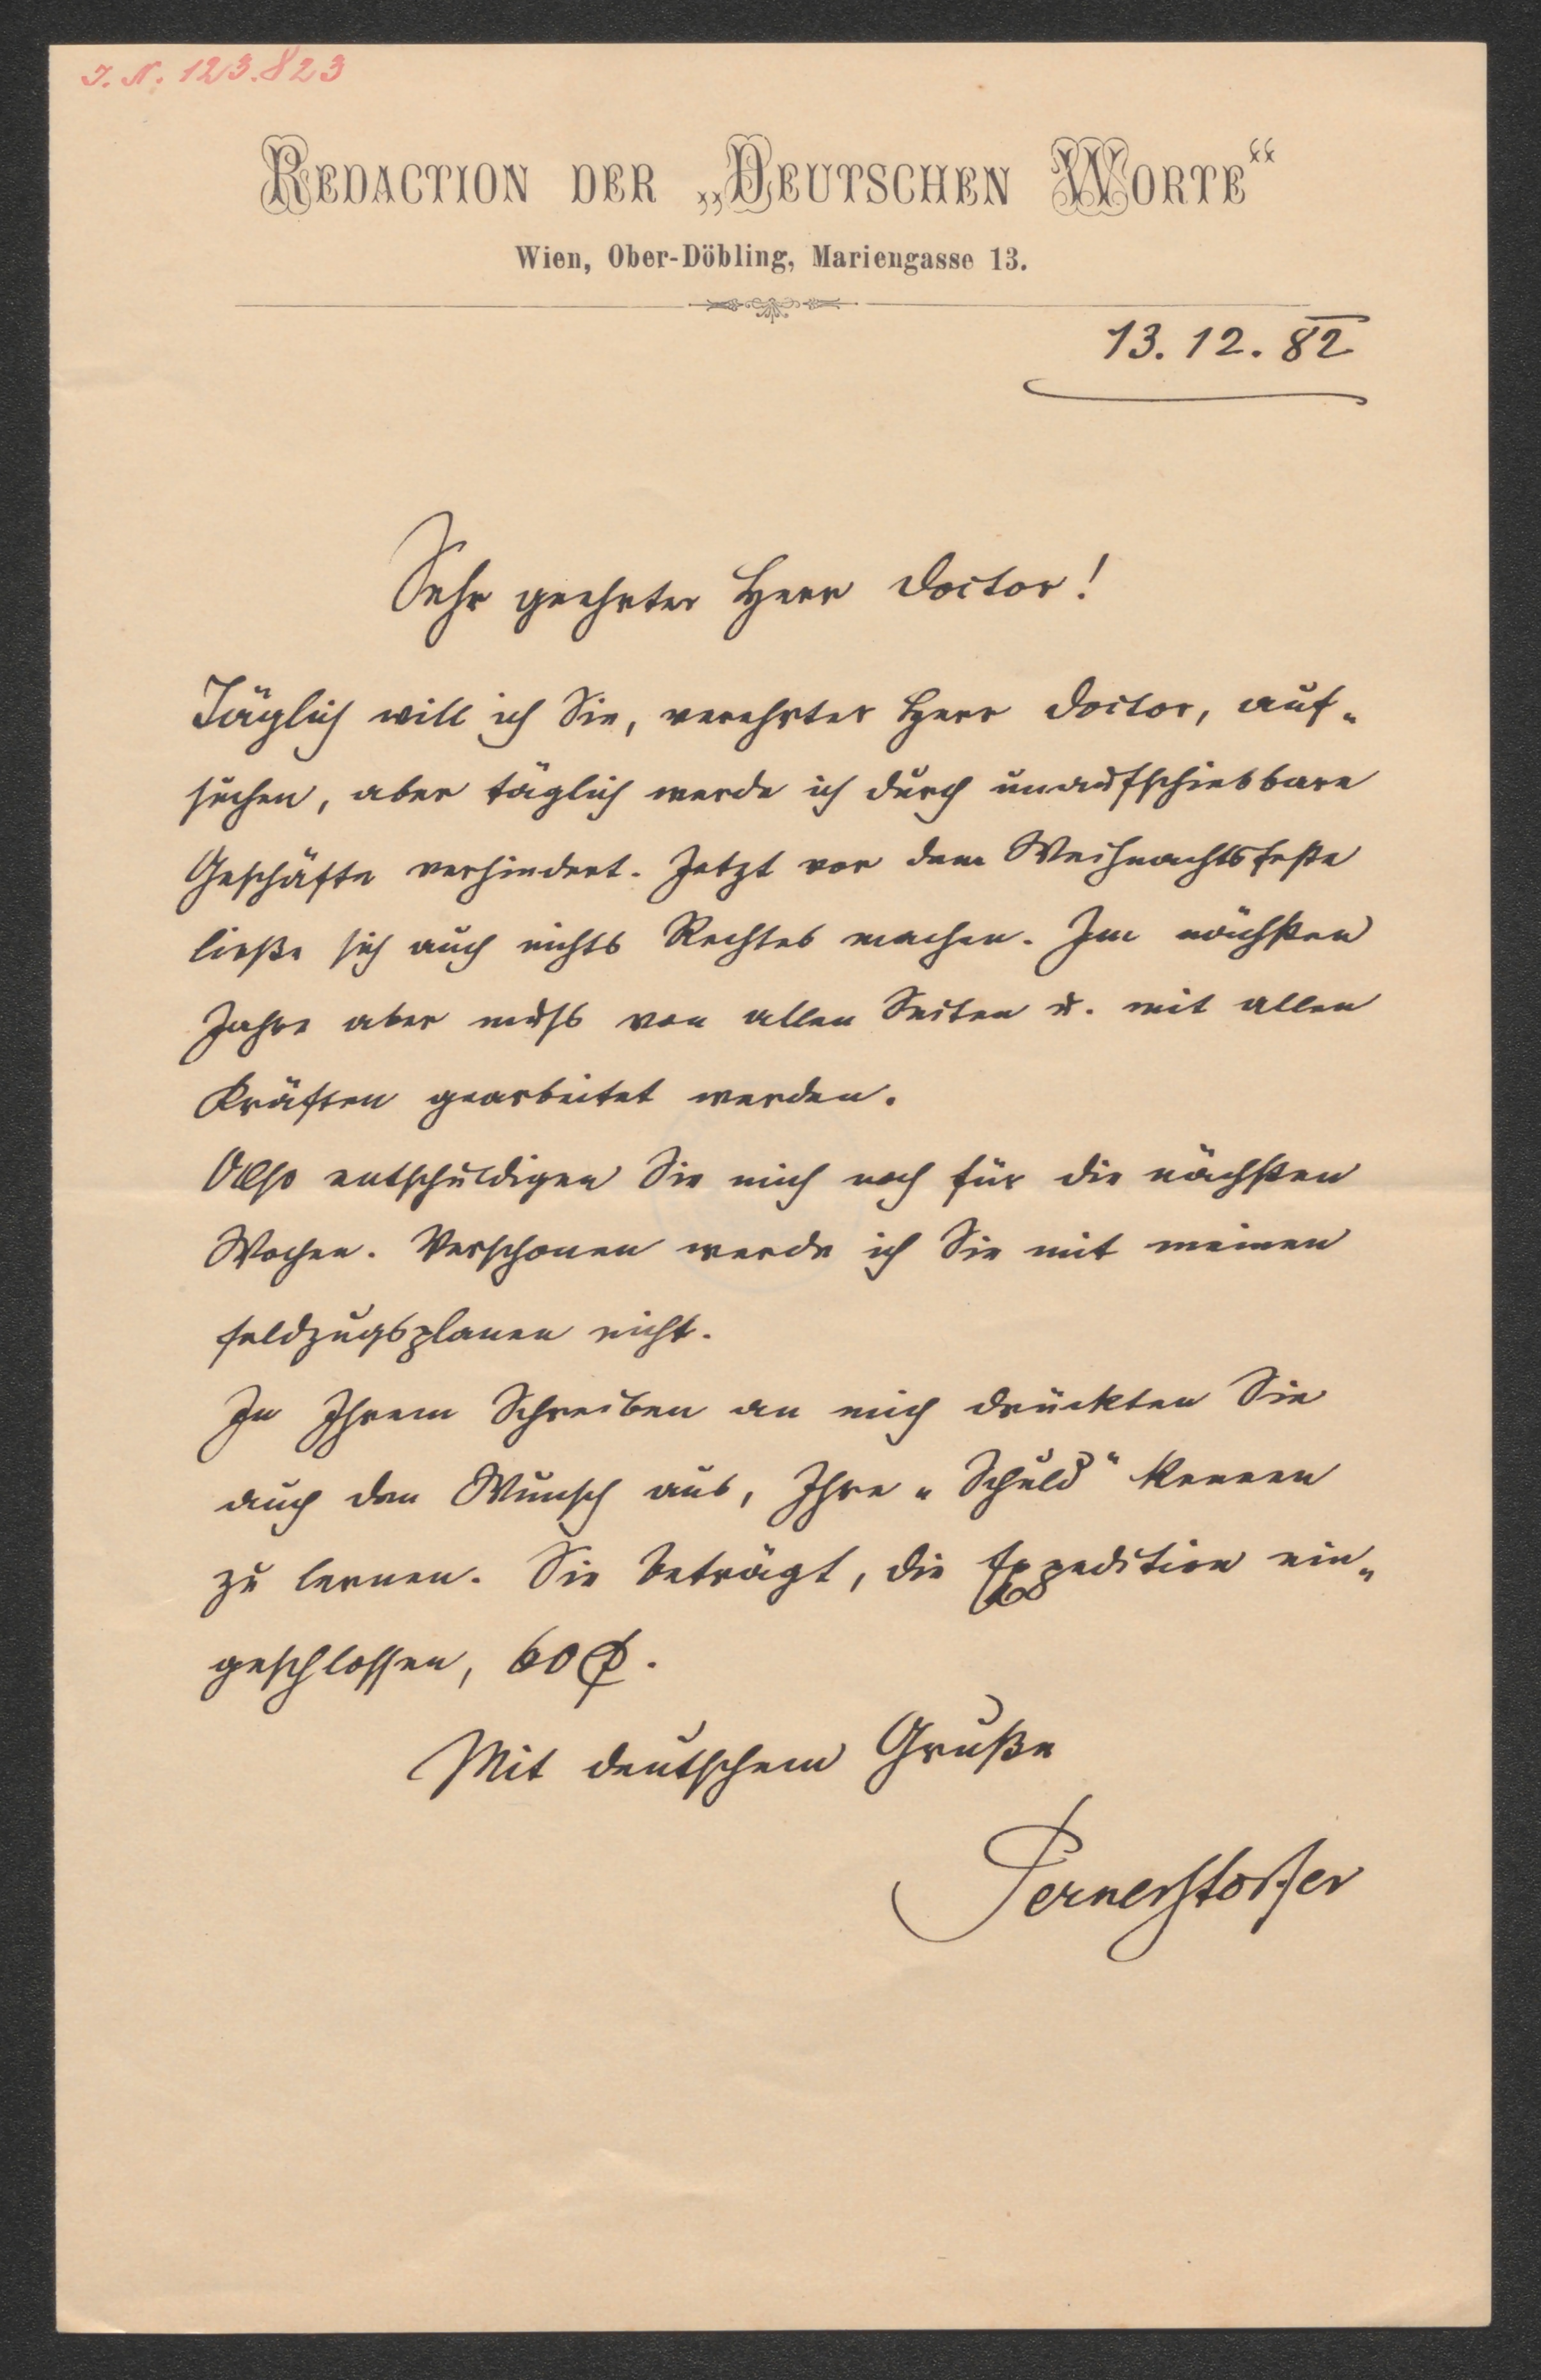 J. N. 123.823
Redaction der „Deutschen Worte“
Wien, Ober-Döbling, Mariengasse 13.
13. 12. 82
Sehr geehrter Herr Doctor!
Täglich will ich Sie, verehrter Herr Doctor, auf-
suchen, aber täglich werde ich durch unaufschiebbare
Geschäfte verhindert. Jetzt vor dem Weihnachtsfeste
ließe sich auch nichts Rechtes machen. Im nächsten
Jahre aber muss von allen Seiten u. mit allen
Kräften gearbeitet werden.
Also entschuldigen Sie mich noch für die nächsten
Wochen. Verschonen werde ich Sie mit meinen
Feldzugsplanen nicht.
In Ihrem Schreiben an mich drückten Sie
auch den Wunsch aus, Ihre „Schuld“ kennen
zu lernen. Sie beträgt, die Expedition ein-
geschlossen, 60
Mit deutschem Gruße
Pernerstorfer